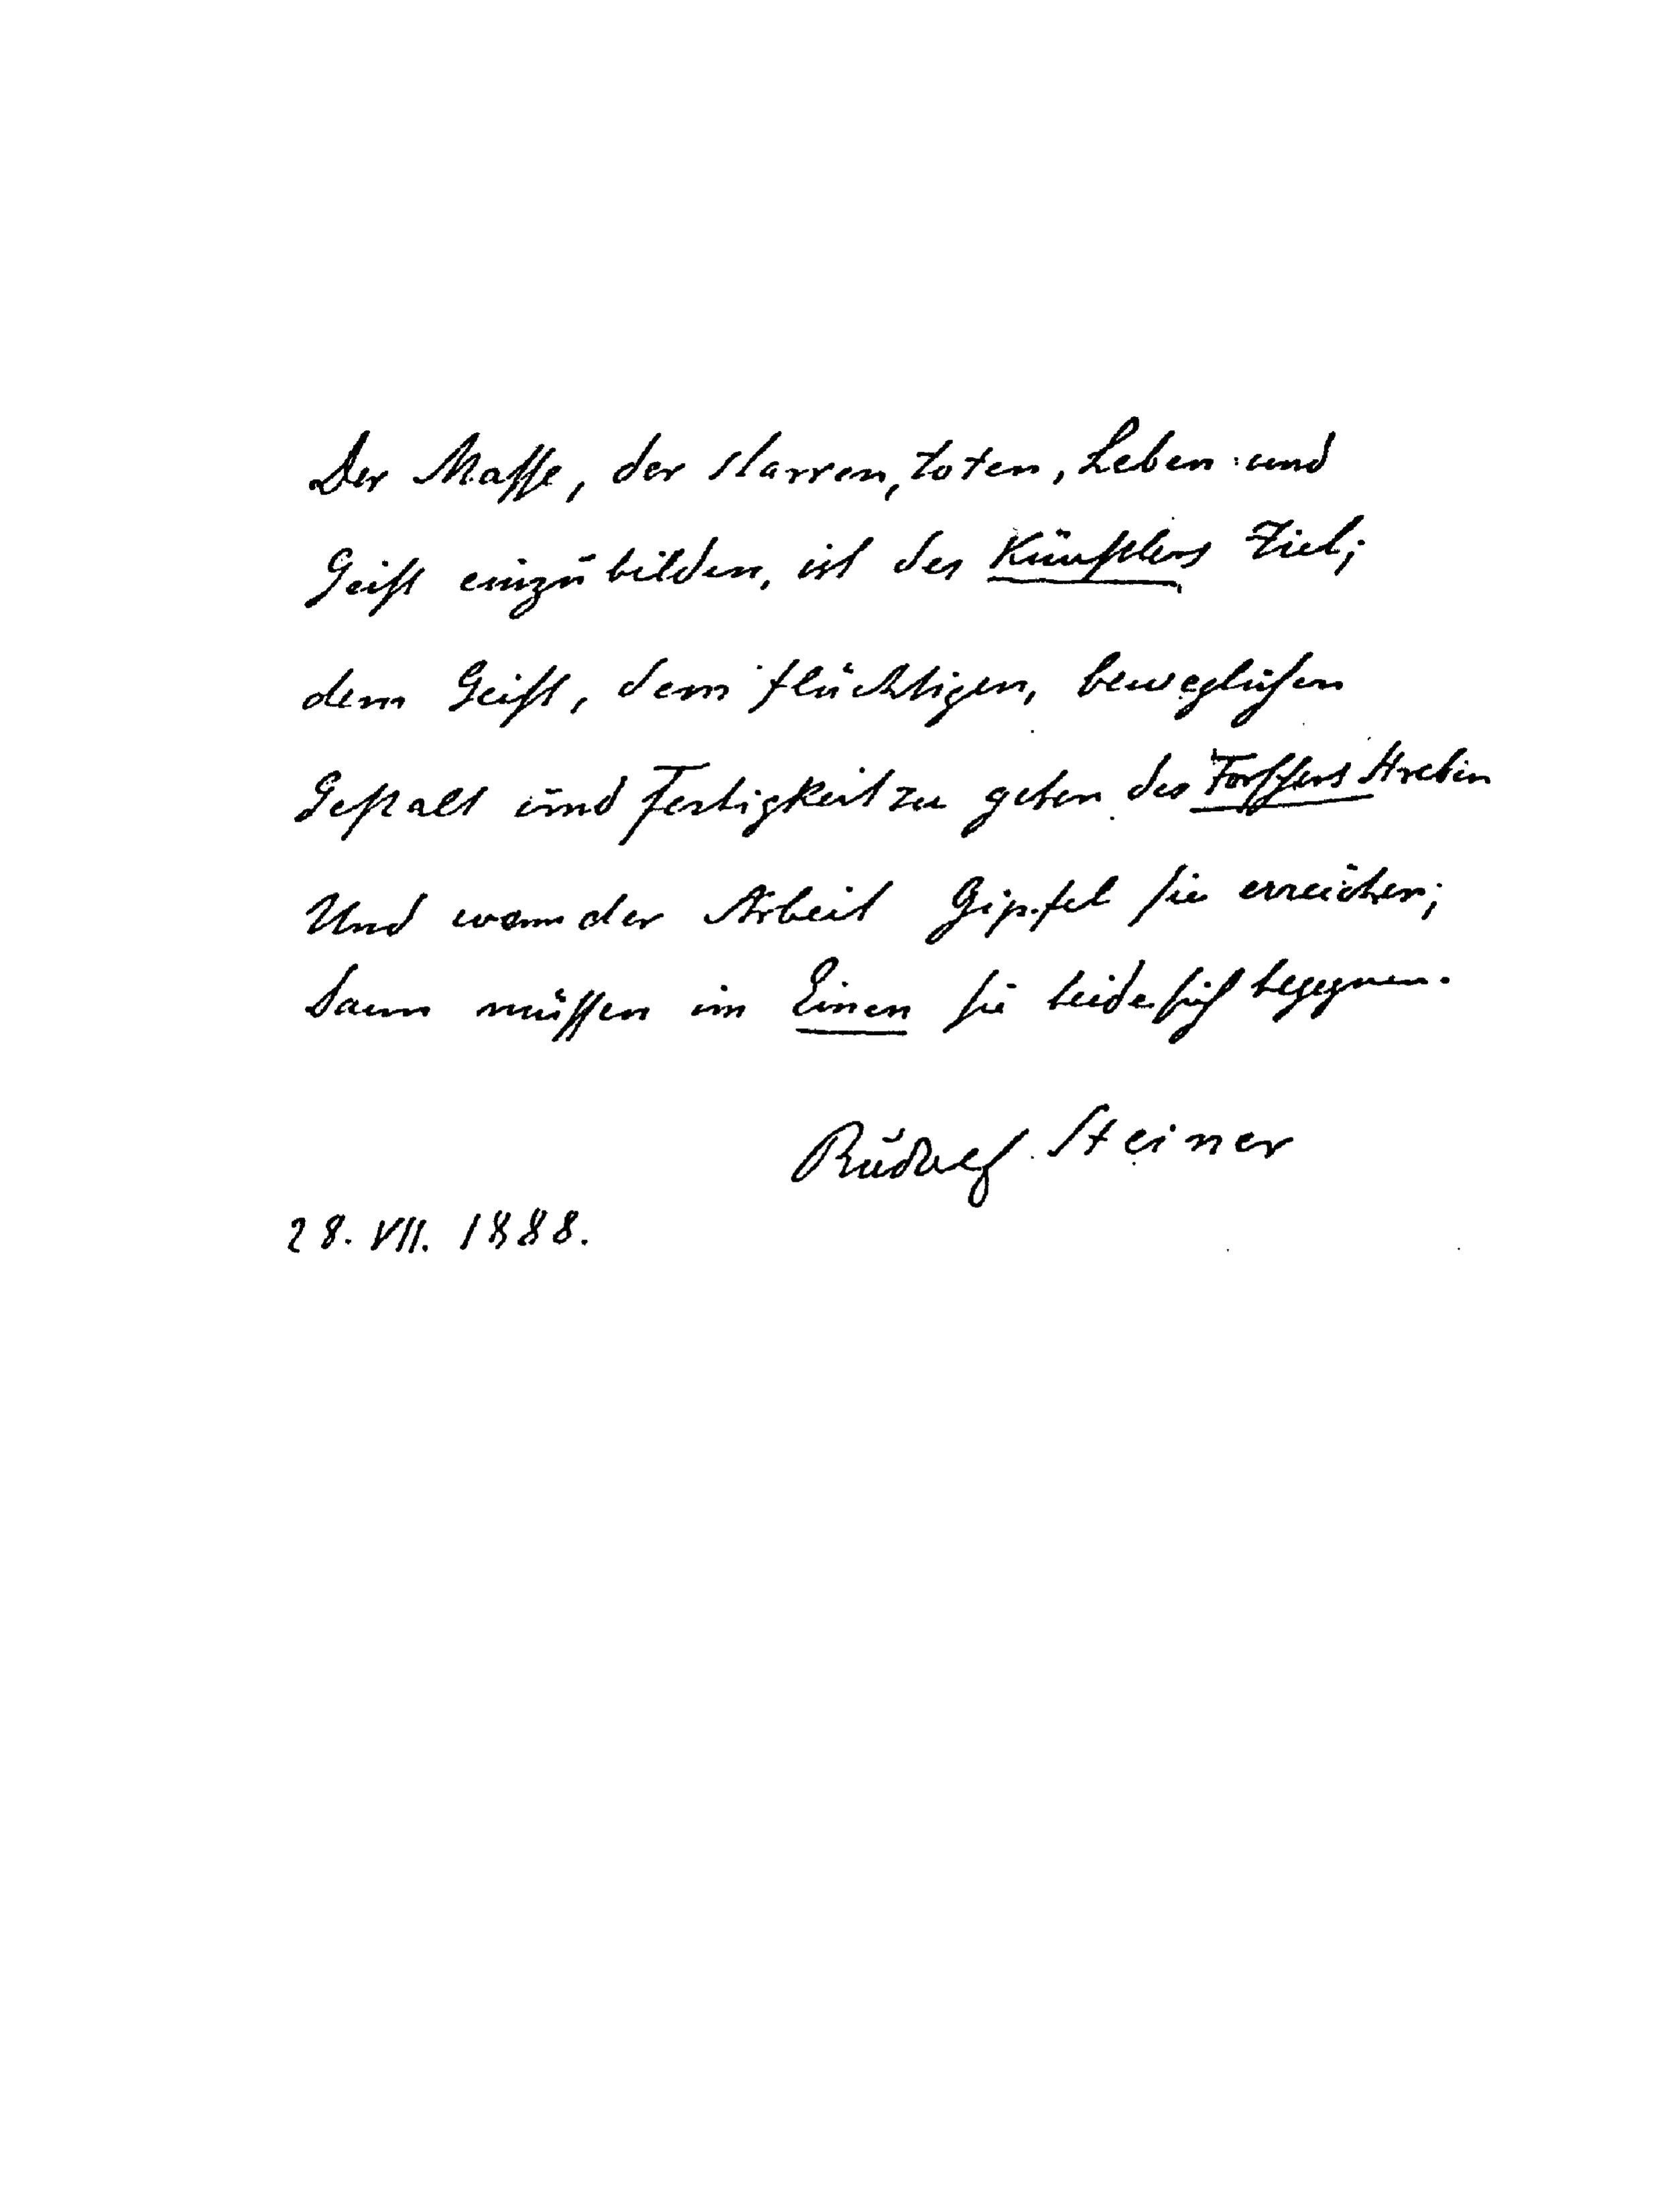 Der Masse, der starren, toten, Leben und
Geist einzubilden, ist des Künstlers Ziel;
dem Geist, dem flüchtigen, beweglichen
Gestalt und Festigkeit zu geben des Forschers Streben
Und wenn der Arbeit Gipfel sie erreichen;
Dann müssen im Einen sie beide sich begegnen.
Rudolf Steiner
28. VII. 1888.